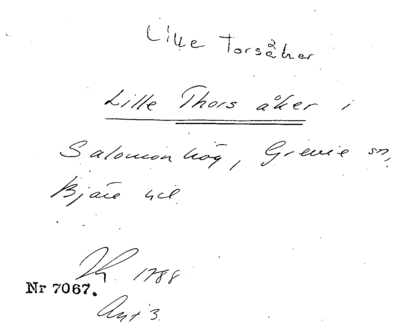 Lille Torsåker
Lille Thors åker i
Salomonhög, Grevie sn,
Bjäre hd
1788
Nr 7067.
Ant 3.